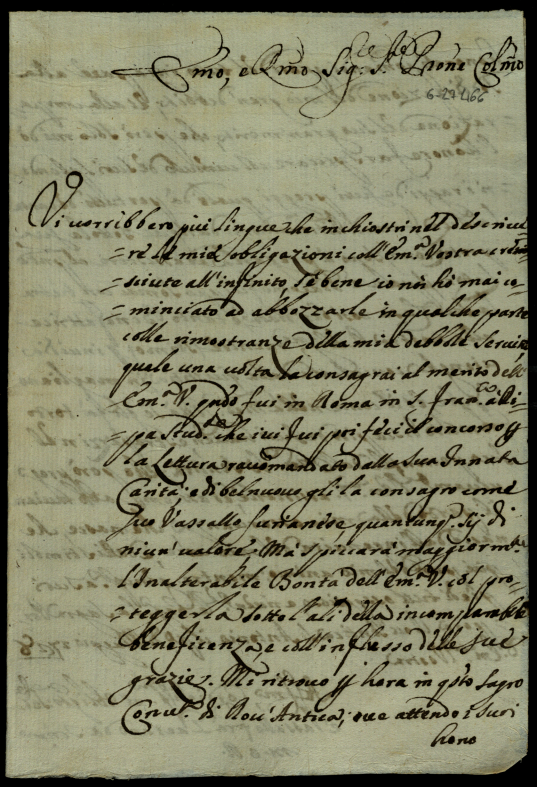 Emo, e Rmo Sig:re S.re Pron̄e Colm̃o
6-27466
Vi vorribbero più lingue che inchiostri nel descrive-
=re le mie obligazioni coll'Em.a Vostra cre-
=sciute all'infinito, se bene io nõ hò mai co-
=minciato ad abbozzarle in qualche parte
colle rimostranze della mia debbole servitù
quale una volta la consagrai al merito dell'
Em.a V. qñdo fui in Roma in S. Fran.co a Ri-
=pa Stud.te che ivi fui poi feci il concorso p
la Lettura racomandato dalla sua Innata
Carità; e di bel nuovo gli la consagro come
suo Vassallo furianese, quantunq. sij di
niun valore. Mà spiccarà maggiorm.te
l'Inalterabile Bontà dell'Em.a V. col pro-
=teggerla sotto l'ali della incomparabile
beneficenza, e coll'inflesso delle sue
grazie. Mi ritrovo p hora in q̃sto Sagro
Conv.to di Antica; ove attendo i suoi
hono